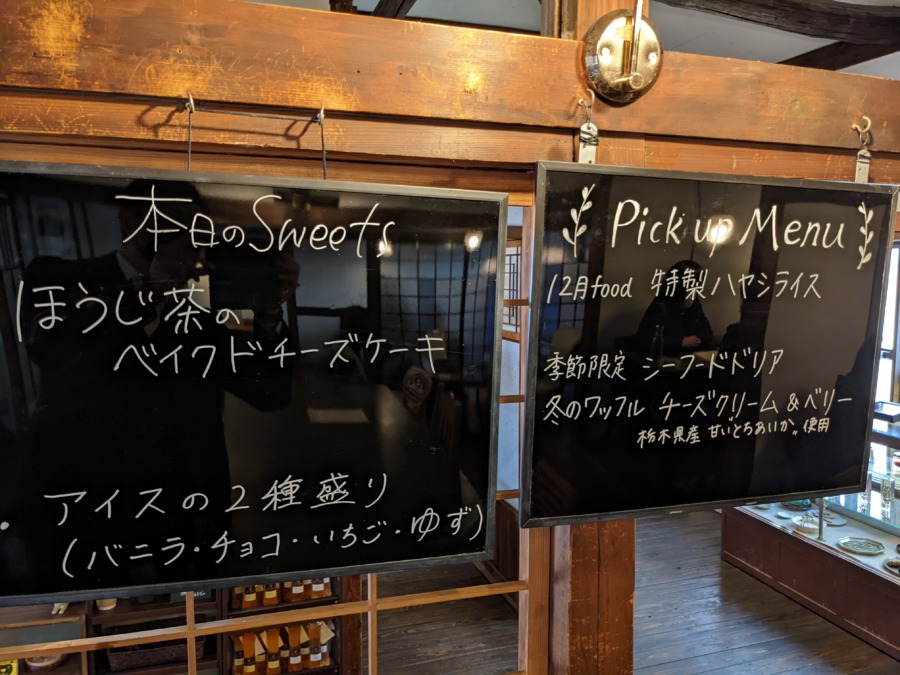 本日のSweets
ほうじ茶の
ベイクドチーズケーキ
・アイスの2種盛り
(バニラ・チョコ・いちご・ゆず)
Pick up Menu
12月food 特製ハヤシライス
季節限定 シーフードドリア
冬のワッフル チーズクリーム & ベリー
栃木県産 甘いとちあいか〃使用